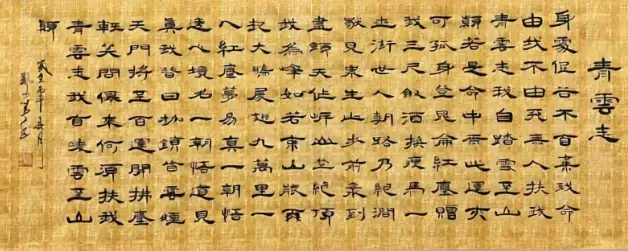 青雲志
身處低谷不自棄我命
由我不由天無人扶我
青雲志我自踏雪至山
巔若是命中無此運亦
可孤身登昆侖紅塵贈
我三尺劍酒換瘦馬一
世街世人朝路乃絕澗
獨見眾生止步前索到
盡頭天作岸山登絕頂
我為峰如若東山能再
起大鵬展翅九萬里一
入紅塵夢易真一朝悟
心境名一朝悟道見
真我昔日枷鎖皆雲煙
天門將至百運開拂塵
輕笑問仙來何須扶我
青雲志我自凌雲至山
巔